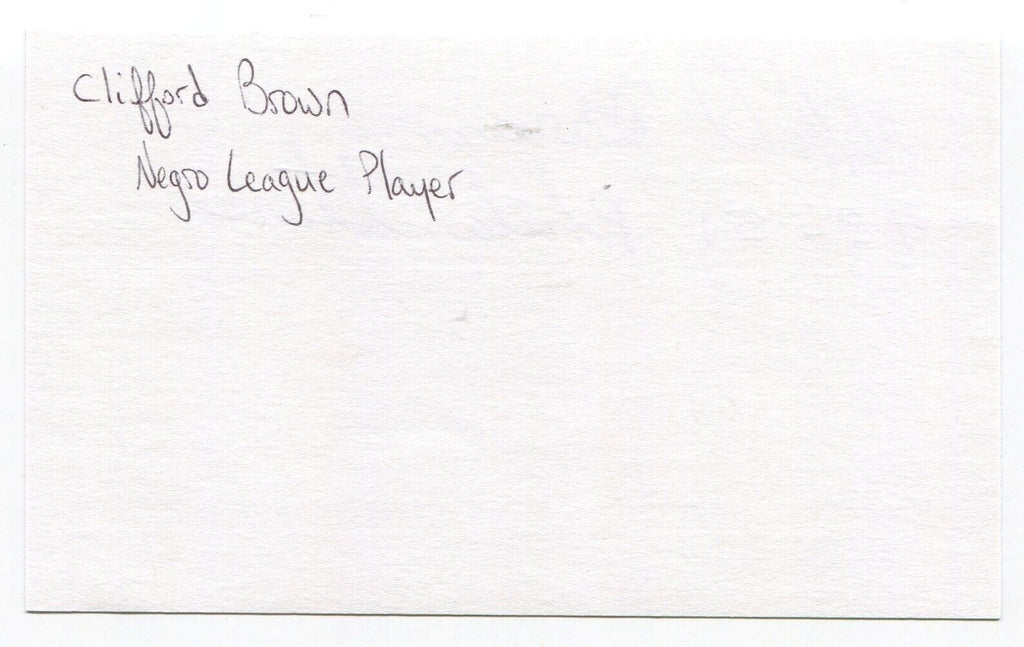 Clifford Brown
Negro League Player